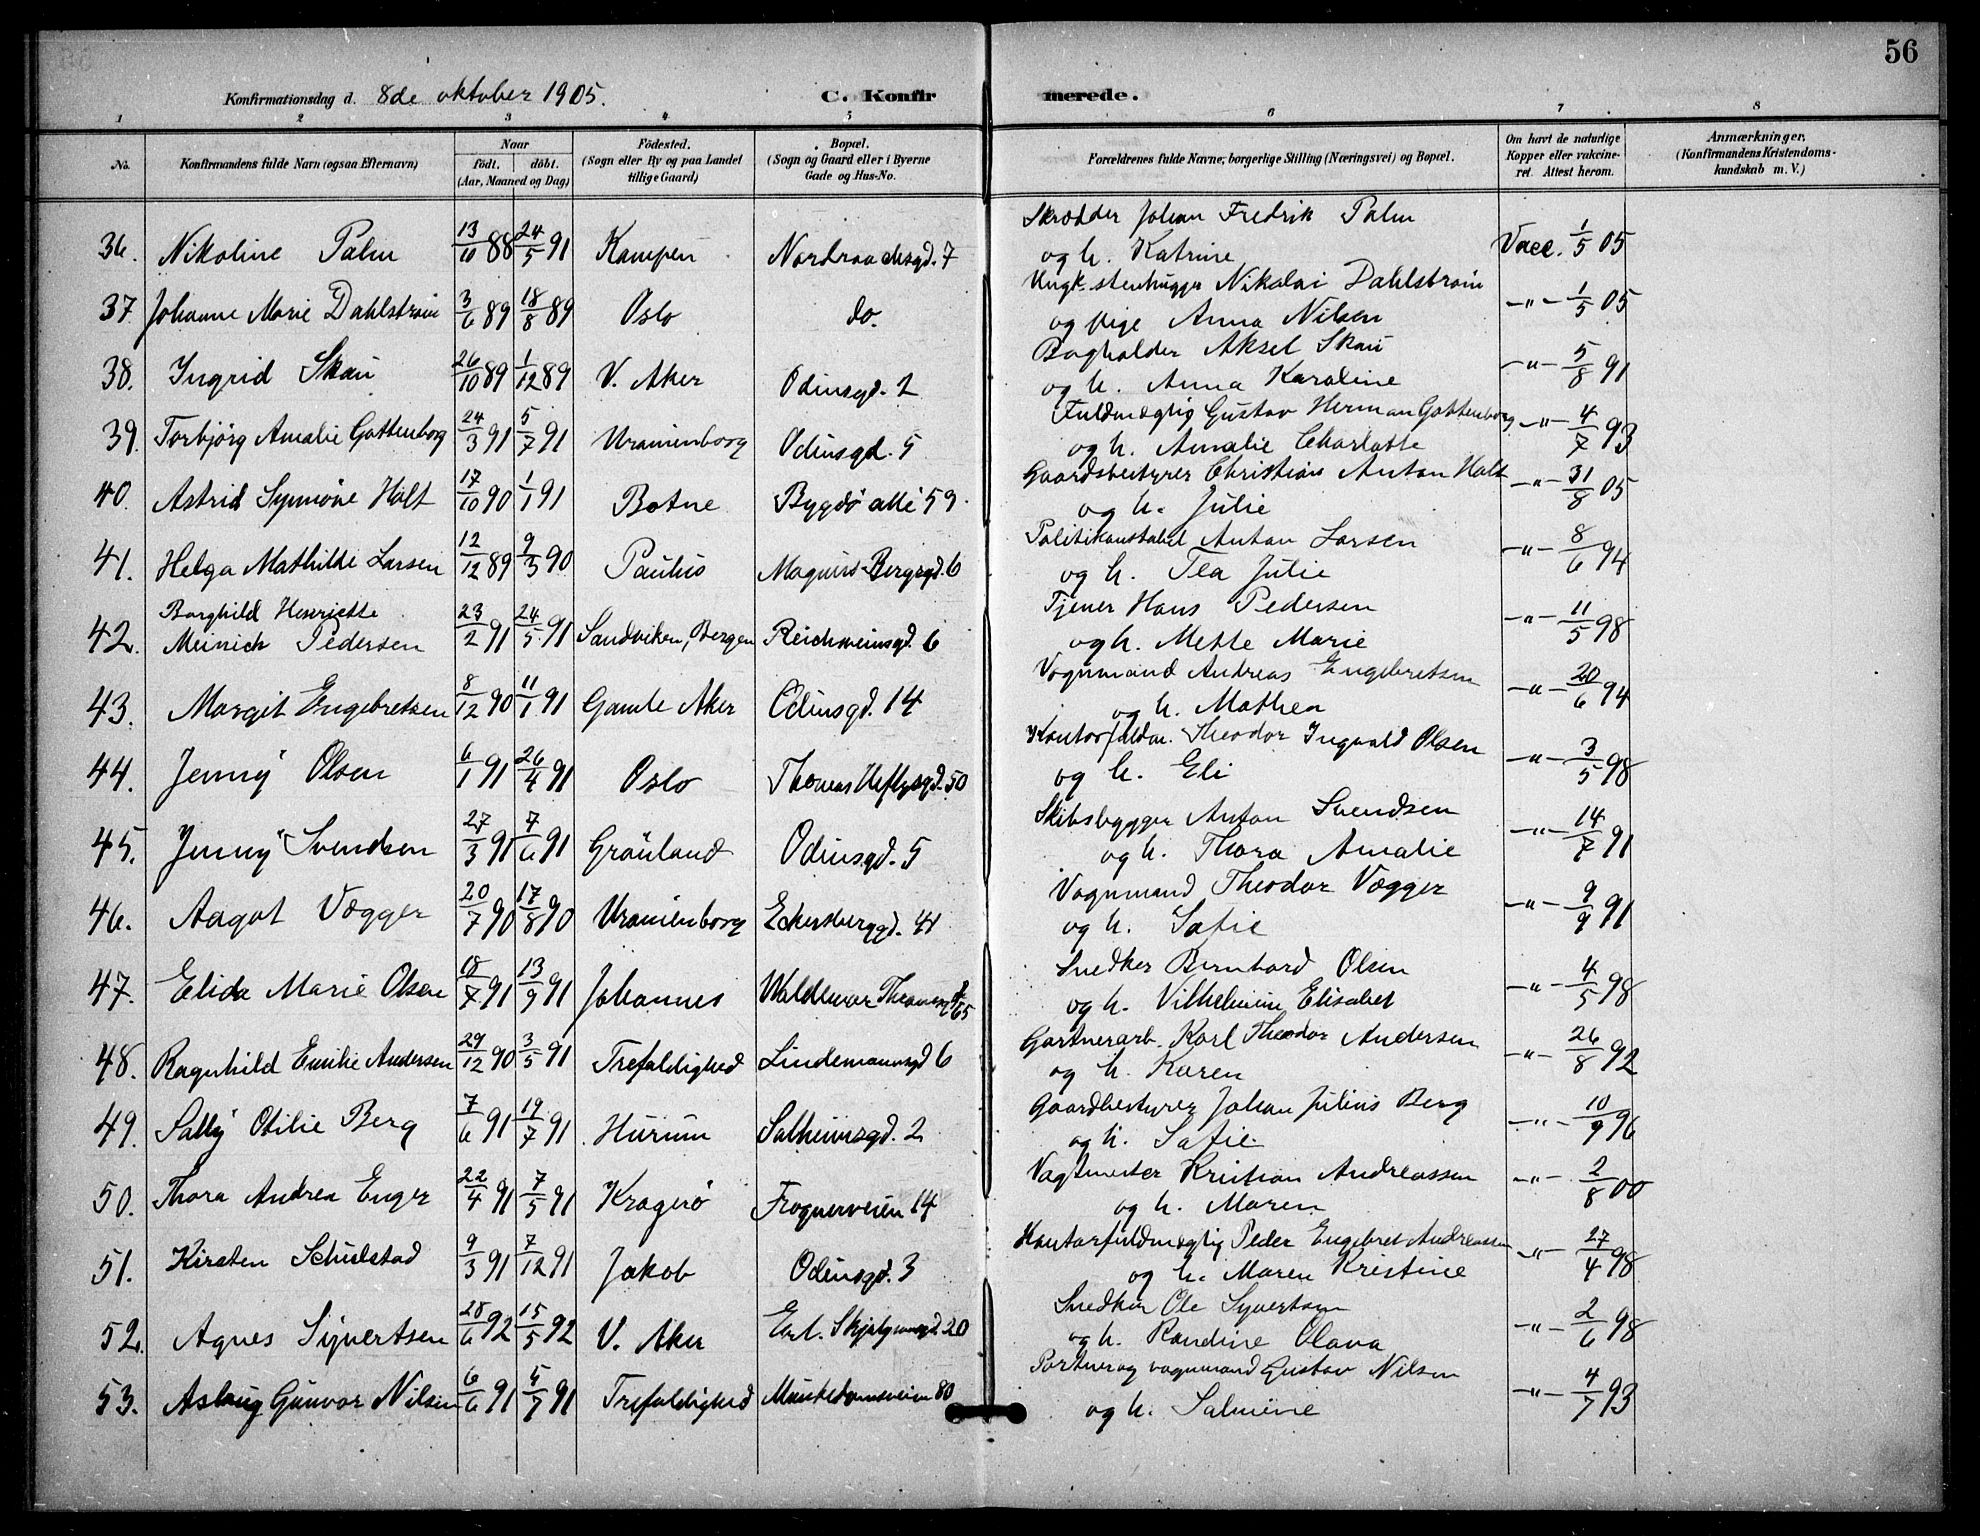 56
Konfirmationsdag d. 8de oktober 1905. C. Konfirmerede.
1 2 3 4 5 6 7 8
No. Konfirmandens fulde Navn (ogsaa Efternavn) Naar födt. döbt. (Aar, Maaned og Dag) Födested. (Sogn eller By og paa Landet tillige Gaard) Bopæl. (Sogn og Gaard eller i Byerne Gade og Hus-No. Forældrenes fulde Navne, borgerlige Stilling (Næringsvei) og Bopæl. Om havt de naturlige Kopper eller vakcineret. Attest herom. Anmærkninger. (Konfirmandens Kristendomskundskab m. V.)
Skrædder Johan Fredrik Palm
36. Nikoline Palm 13/10 88 24/5 91 Kampen Nordraachsgd. 7 og h. Katrine Vacc. 1/5 05
Ungk. stenhugger Nikolai Dahlstrøm
37. Johanne Marie Dahlstrøm 3/6 89 18/8 89 Oslo do. og pige Anna Nilsen -"- 1/5 05
Bogholder Aksel Skau
38. Ingrid Skau 26/10 89 1/12 89 V. Aker Odinsgd. 2 og h. Anna Karoline -"- 5/8 91
Fuldmægtig Gustav Herman Gottenborg
39. Torbjörg Amalie Gottenborg 24/3 91 5/7 91 Uranienborg Odinsgd. 5 og h. Amalie Charlotte -"- 4/7 93
Gaardsbestyrer Christian Anton Holt
40. Astrid Synnöve Holt 17/10 90 1/1 91 Botne Bygdö allé 59. og h. Julie -"- 31/8 05
Politikonstabel Anton Larsen
41. Helga Mathilde Larsen 12/12 89 9/3 90 Paulus Magnus Bergsgd. 6 og h. Tea Julie -"- 8/6 94
Borghild Henriette Tjener Hans Pedersen
42. Meinich Pedersen 23/2 91 24/5 91 Sandviken, Bergen Reichweinsgd. 6 og h. Mette Marie -"- 11/5 98
Vognmand Andreas Engebretsen
43. Margit Engebretsen 8/12 90 11/1 91 Gamle Aker Odinsgd. 14 og h. Mathea -"- 20/6 94
Kontorfuldm. Theodor Ingvald Olsen
44. Jenny Olsen 6/1 91 26/4 91 Oslo Thomas Heftysgd. 50 og h. Eli -"- 3/5 98
Skibsbygger Anton Svendsen
45. Jenny Svendsen 27/3 91 7/6 91 Grönland Odinsgd. 5 og h. Thora Amalie -"- 14/7 91
Vognmand Theodor Vægger
46. Aagot Vægger 20/7 90 17/8 90 Uranienborg Eckersberggd. 41 og h. Sofie -"- 9/9 91
Snedker Bernhard Olsen
47. Elida Marie Olsen 18/7 91 13/9 91 Johannes Waldemar Thranesgd 65 og h. Vilhelmine Elisabet -"- 4/5 98
Gartnerarb. Karl Theodor Andersen
48. Ragnhild Emilie Andersen 29/12 90 3/5 91 Trefoldighed Lindemannsgd 6 og h. Karen -"- 26/8 92
Gaardbestyrer Johan Julius Berg
49. Sally Otilie Berg 7/6 91 19/7 91 Hurum Solheimsgd. 2 og h. Sofie -"- 10/9 96
Vagtmester Kristian Andreassen
50. Thora Andrea Enger 22/4 91 7/5 91 Kragerö Frognerveien 14 og h. Maren -"- 2/8 00
Kontorfuldmægtig Peder Engebret Andreassen
51. Kirsten Schulstad 9/3 91 7/12 91 Jakob Odinsgd. 3 og h. Maren Kristine -"- 27/4 98
Snedker Ole Syvertsen
52. Agnes Sijvertsen 28/6 92 15/5 92 V. Aker Erl. Skjalgssonsgd. 20 og h. Randine Olava -"- 2/6 98
Portner og vognmand Gustav Nilsen
53. Aslaug Gunvor Nilsen 6/6 91 5/7 91 Trefoldighed Munkedamsveien 80 og h. Salmine -"- 4/7 93